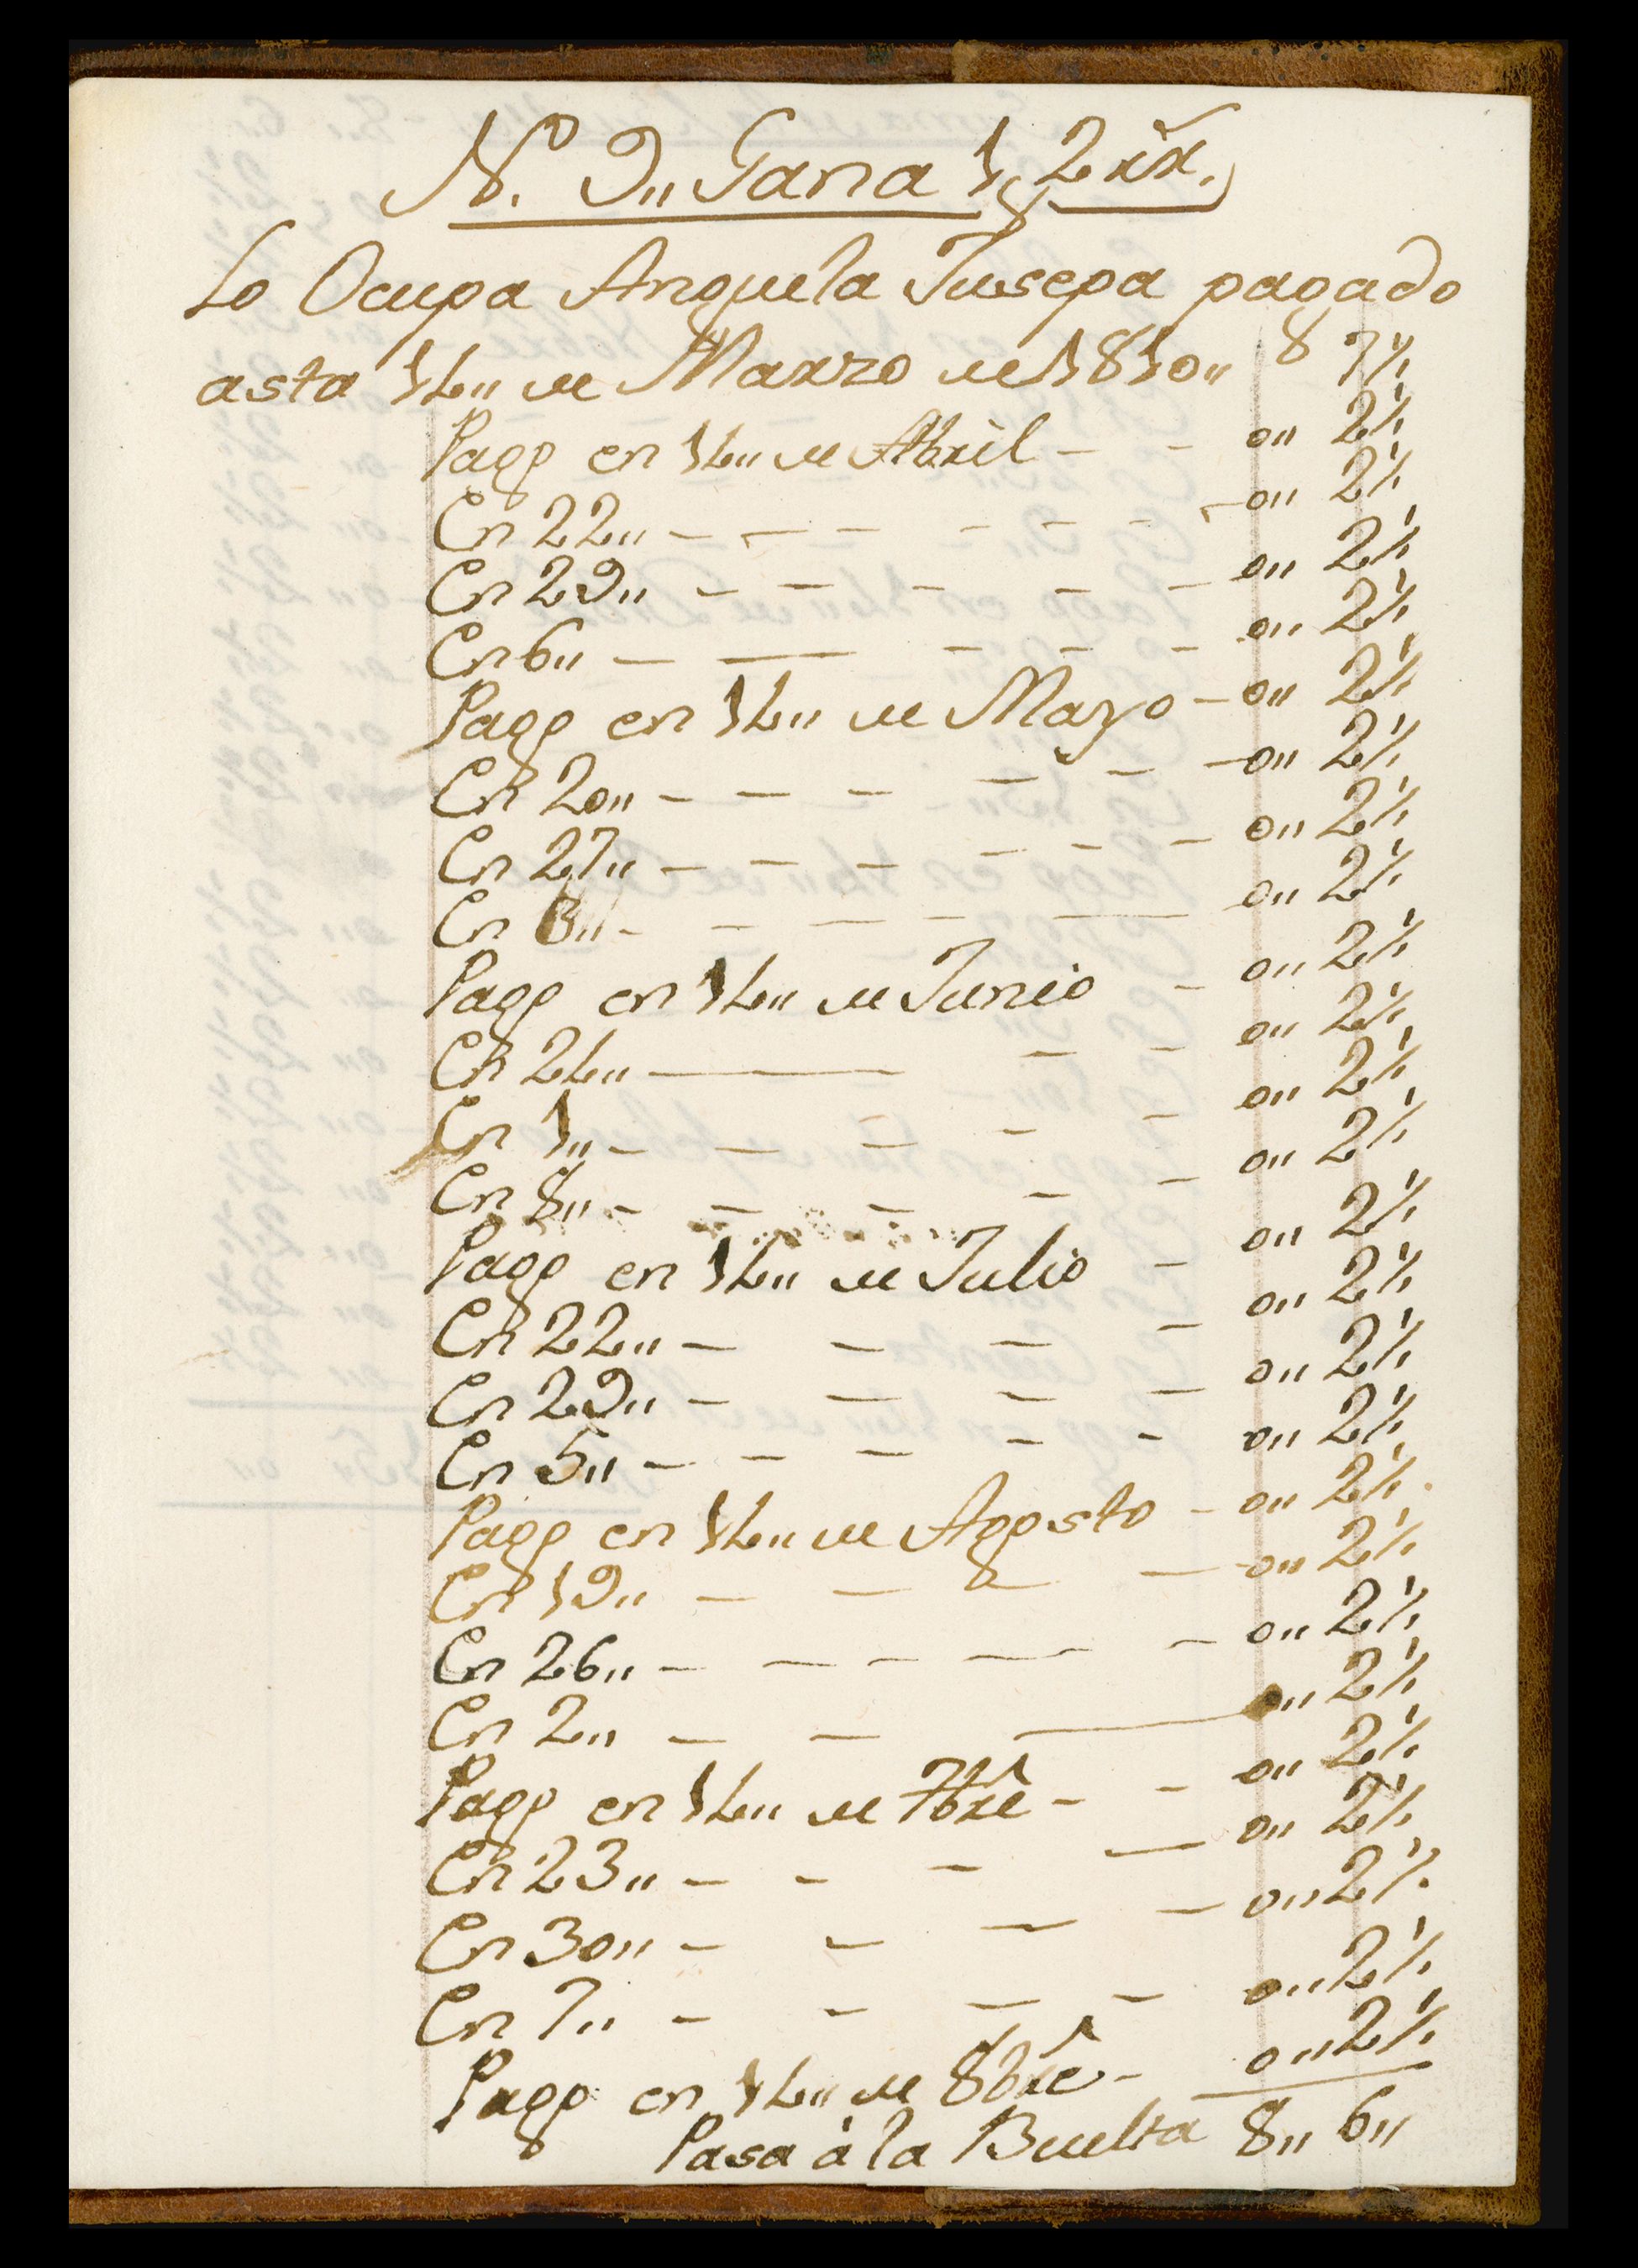 N.º 9,, Gana 1 p 2 rr.
Lo Ocupa Anguela Jusepa pagado
asta 14,, de Marzo de 1810,, 7½
Pago en 14,, de Abril - - 0,, 2½
En 22,, - - - - - - - 0,, 2½
En 29,, - - - - - 0,, 2½
En 6,, - - - - - 0,, 2½
Pago en 14,, de Mayo - 0,, 2½
En 20,, - - - - - - 0,, 2½
En 27,, - - - - - - 0,, 2½
En 3,, - - - - - 0,, 2½
Pago en 14,, de Junio - 0,, 2½
En 24,, - - - 0,, 2½
En 1,, - - - - - 0,, 2½
En 8,, - - - - - 0,, 2½
Pago en 14,, de Julio - 0,, 2½
En 22,, - - - - 0,, 2½
En 29,, - - - - 0,, 2½
En 5,, - - - - - 0,, 2½
Pago en 14,, de Agosto - 0,, 2½
En 19,, - - - - 0,, 2½
En 26,, - - - - - 0,, 2½
En 2,, - - - 0,, 2½
Pago en 14,, de 7bre - - 0,, 2½
En 23,, - - - - 0,, 2½
En 30,, - - - - 0,, 2½
En 7,, - - - - 0,, 2½
Pago en 14,, de 8bre - 0,, 2½
Pasa à la Buelta 8,, 6,,